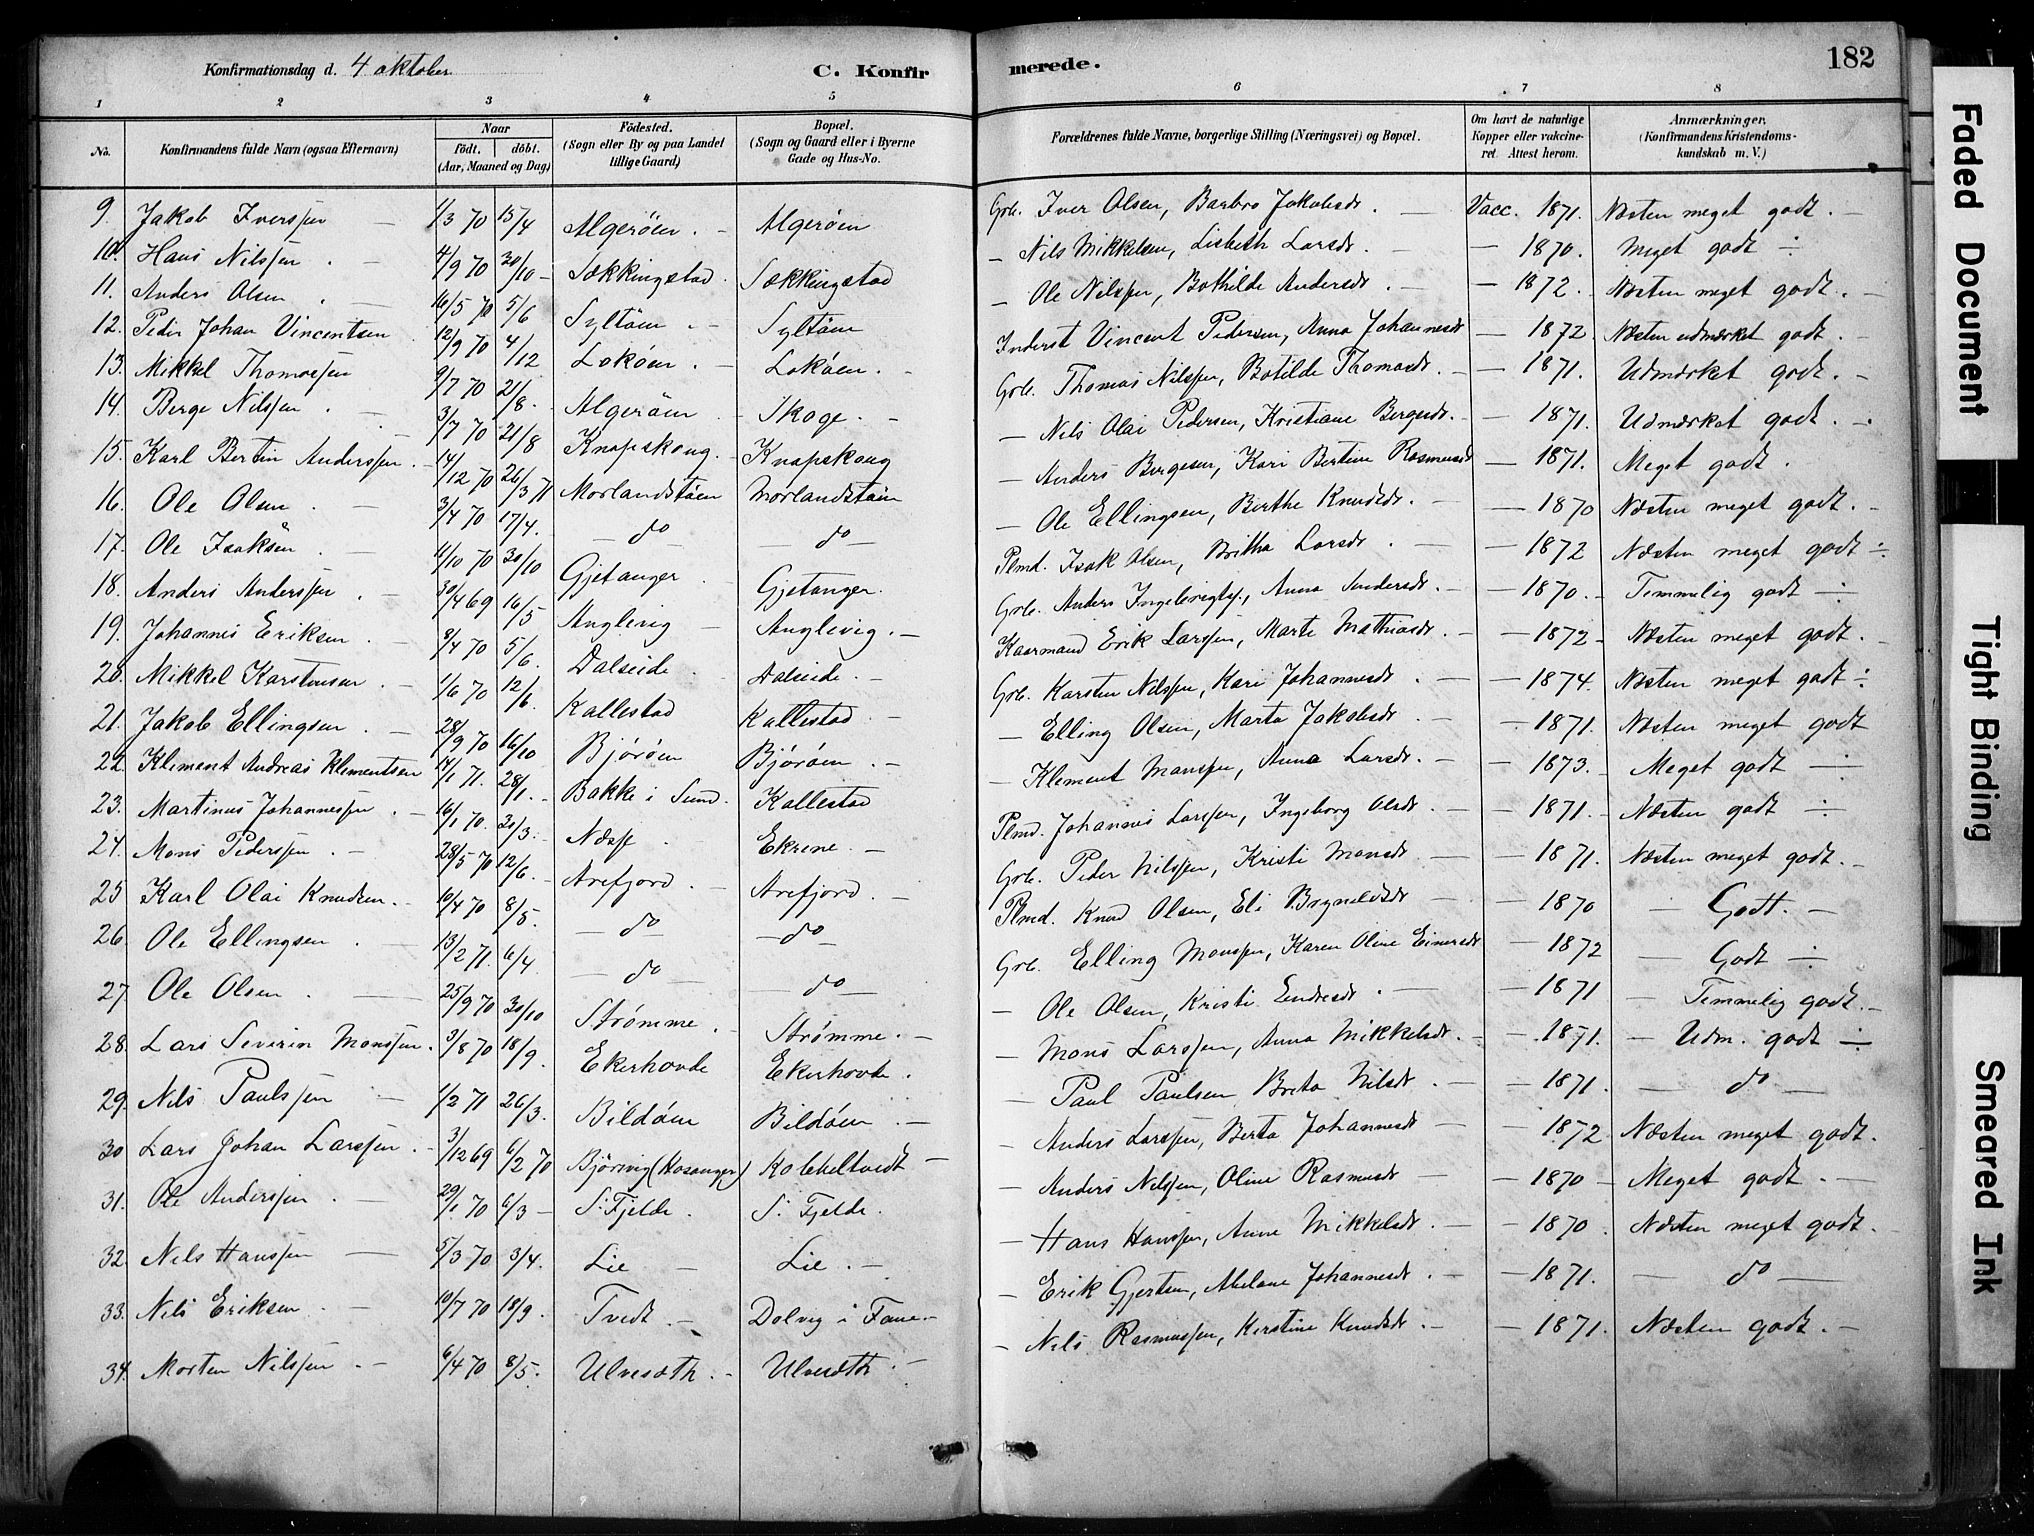 Konfirmationsdag d. 4 oktober C. Konfirmerede. 182
1 2 3 4 5 6 7 8
No. Konfirmandens fulde Navn (ogsaa Efternavn) Naar Födt. döbt. (Aar, Maaned og Dag) Födested. (Sogn eller By og paa Landet tillige Gaard) Bopæl. (Sogn og Gaard eller i Byerne Gade og Hus-No. Forældrenes fulde Navne, borgerlige Stilling (Næringsvei) og Bopæl. Om havt de naturlige Kopper eller vakcineret. Attest herom. Anmærkninger. (Konfirmandens Kristendomskundskab m. V.)
9. Jakob Iverssen — 1/3 70 15/4 Algeröen. — Algeröen Grb. Iver Olsen, Barbro Jakobsdr. — Vacc. 1871. Næsten meget godt. —
10. Hans Nilssen. — 4/9 70 30/10 — Sækkingstad. Sækkingstad — Nils Mikkelsen, Lisbeth Larsdr. — — 1870. Meget godt ÷
11. Anders Olsen. — 16/5 70 5/6 Syltöen. — Syltöen — Ole Nilssen, Bothilde Andersdr. — — 1872. Næsten meget godt. —
12. Peder Johan Vincentsen 12/9 70 4/12 Loköen. — Loköen. — Inderst Vincent Pedersen, Anna Johannesdr — 1872. Næsten udmærket godt. —
13. Mikkel Thomassen 9/7 70 21/8. Algeröen — Skoge. — Grb. Thomas Nilssen, Botilde Thomasdr. — — 1871. Udmærket godt. —
14. Berge Nilssen. — 3/7 70 21/8 Knapskoug. — Knapskoug — Nils Olai Pedersen, Kristiane Bergesdr. — — 1871. Udmærket godt. —
15. Karl Bertin Anderssen. — 14/12 70 26/3 71 Morlandstöen Morlandstöen — Anders Bergesen, Kari Bertine Rasmusdr — 1871. Meget godt.
16. Ole Olsen. — 3/4 70 17/4. — do — do — — Ole Ellingsen, Berthe Knudsdr. — — 1870 Næsten meget godt. —
17. Ole Isaksen. — 11/10 70 30/10 Gjetanger. Gjetanger. Plmd. Isak Olsen, Britha Larsdr. — — 1872 Næsten meget godt ÷
18. Anders Anderssen. — 30/4 69 16/5 Anglevig — Anglevig. — Grb. Anders Ingebrigts., Anna Sendersdr. — — 1870. — Temmelig godt ÷
19. Johannes Eriksen. — 8/4 70 5/6. Dalseide. Dalseide. — Kaarmand Erik Larssen, Marte Mathiasdr. — — 1872 — Næsten meget godt. —
20. Mikkel Karstensen. — 1/6 70 12/6. Kallestad Kallestad. — Grb. Karsten Nilssen, Kari Johannesdr. — — 1874. Næsten meget godt ÷
21. Jakob Ellingsen. — 28/9 70 16/10 Björöen Björöen. — — Elling Olsen, Marta Jakobsdr. — — 1871. Næsten meget godt
22. Klement Andreas Klementsen 14/1 71. 28/1. — Bakke i Sund. Kallestad — Klement Monssen, Anna Larsdr. — — 1873. — Meget godt ÷
23. Martinus Johannessen. — 16/1 70. 20/3. — Næsse. Ekrene. — Plmd. Johannes Larssen, Ingeborg Olsdr. — — 1871. — Næsten godt ÷
24. Mons Pederssen. — 28/5 70 12/6. — Arefjord. — Arefjord. — Grb. Peder Nilssen, Kristi Monsdr. — — 1871. Næsten meget godt. —
25 Karl Olai Knudsen. — 10/4 70 8/5. — do — — do — Plmd. Knud Olsen, Eli Brynildsdr — — 1870 — Godt. —
26. Ole Ellingsen. — 13/2 71. 6/4. — do — do — Grb. Elling Monssen, Karen Oline Einersdr — 1872 — Godt ÷
27. Ole Olsen. — 25/9 70 30/10 Strömme. — Strömme. — — Ole Olsen, Kristi Endresdr. — — 1871 — Temmelig godt. —
28. Lars Severin Monssen. 3/8 70 18/9. Ekerhovde Ekerhovde. — Mons Larssen, Anna Mikkelsdr. — — 1871. — Udm. godt ÷
29. Nils Paulssen — 1/2 71 26/3. Bildöen Bildöen. — — Paul Paulsen, Brita Nilsdr. — — 1871. — do —
30 Lars Johan Larssen. — 3/12 69 6/2 70 Björing (Hosanger) Kobbeltvedt — — Anders Larssen, Berta Johannesdr — 1872 Næsten meget godt.
31. Ole Anderssen. — 29/1. 70 6/3 — S. Fjelde. S. Fjelde. — Anders Nilssen, Oline Rasmusdr — — 1870 — Meget godt. —
32. Nils Hanssen — 5/3 70 3/4. Lie — Lie. — — Hans Hanssen, Anne Mikkelsdr. — — 1870. Næsten meget godt.
33. Nils Eriksen. — 10/7 70 18/9. Tvedt. — Dolvig i Fane. — — Erik Gjertsen, Abelone Johannesdr. — — 1871. — do —
34. Morten Nilssen. — 6/4 70 8/5. Ulvesæth. — Ulvesæth. — — Nils Rasmussen, Kirstine Knudsdr. — — 1871. Næsten godt. —
Faded Document
Tight Binding
Smeared Ink